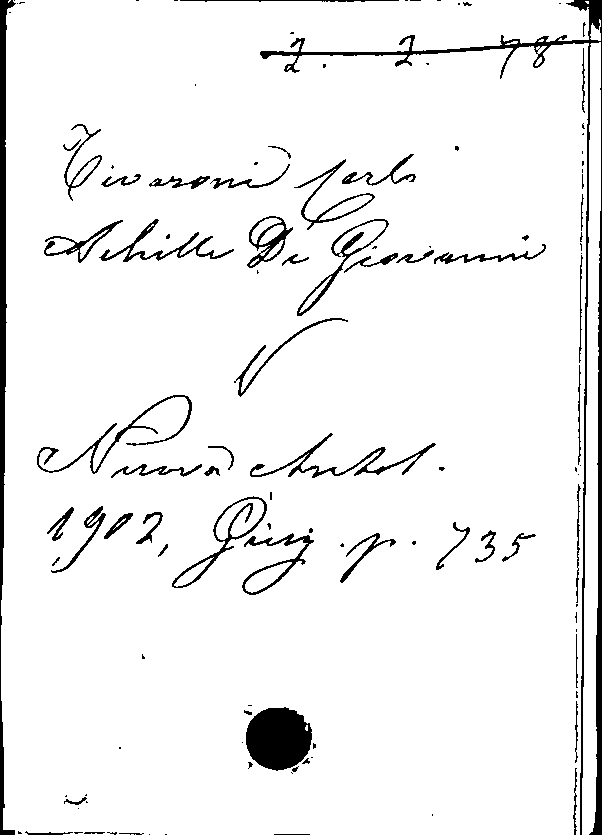 2. 2. 78
Tivaroni Carlo
Achille De Giovanni
V
Nuova Antol.
1902, Giug. p. 735